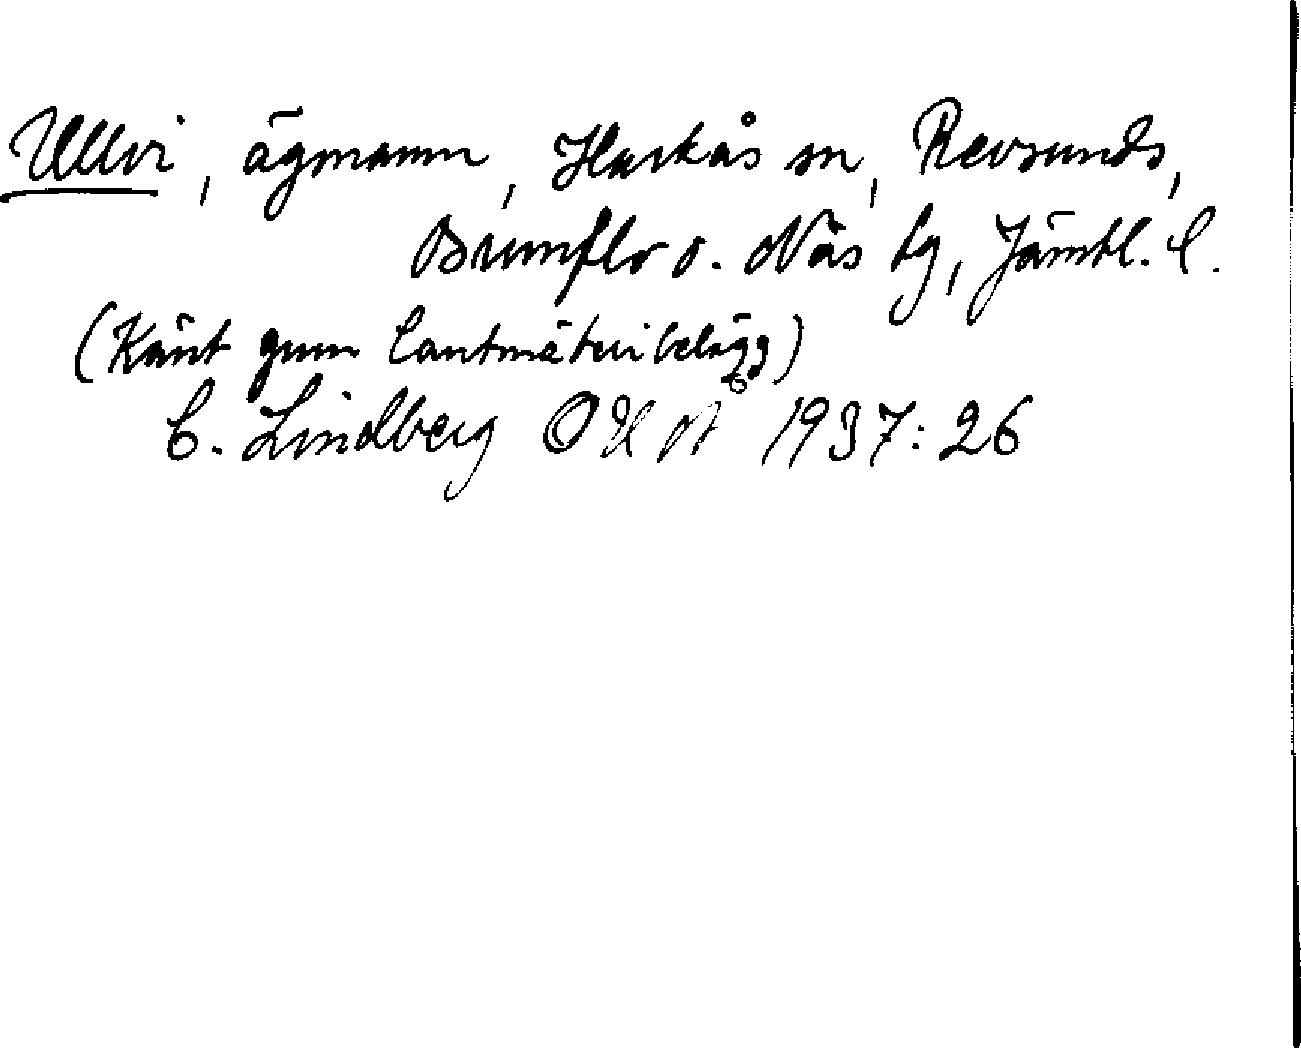 Ullvi, ägmamn, Hackås sn, Revsunds,
Brunflo o. Näs tg, Jämtl. l.
(Känt gnm lantmäteribelägg)
C. Lindberg OUÅ 1937:26